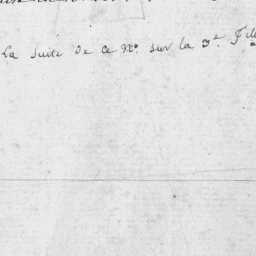 La Suite de ce No. sur la 3e. Fille